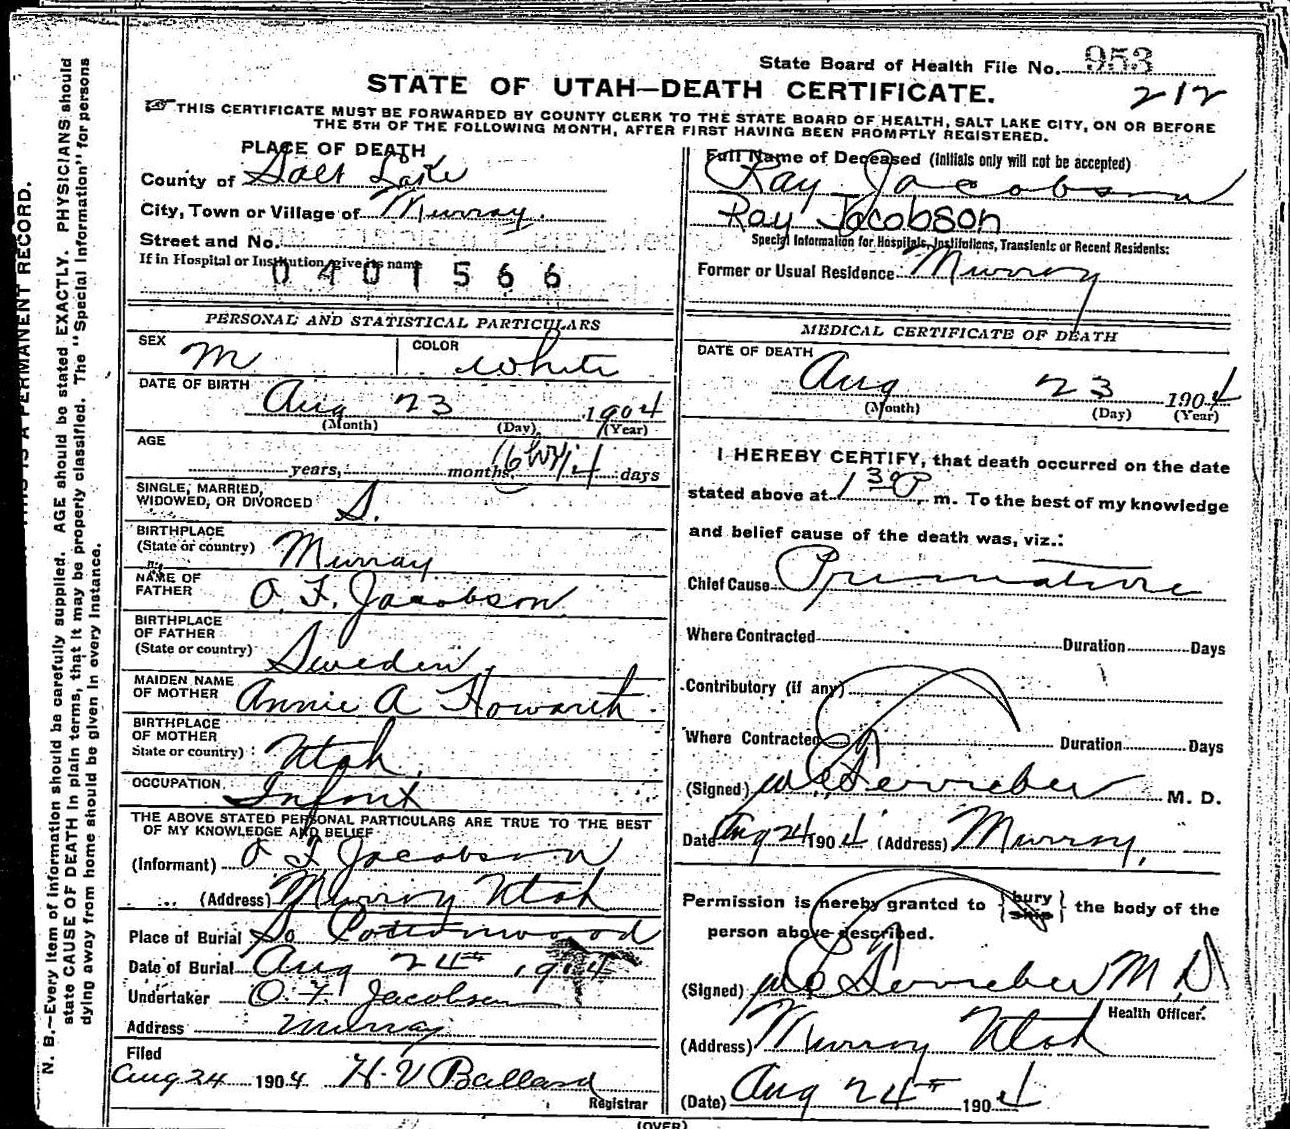 State Board of Health File No. 953
STATE OF UTAH—DEATH CERTIFICATE.
212
THIS CERTIFICATE MUST BE FORWARDED BY COUNTY CLERK TO THE STATE BOARD OF HEALTH, SALT LAKE CITY, ON OR BEFORE
THE 5TH OF THE FOLLOWING MONTH, AFTER FIRST HAVING BEEN PROMPTLY REGISTERED.
PLACE OF DEATH
County of Salt Lake
City, Town or Village of Murray.
Street and No.
If in Hospital or Institution, give its name
0401566
PERSONAL AND STATISTICAL PARTICULARS
SEX M COLOR White
DATE OF BIRTH Aug 23 1904
(Month) (Day) (Year)
AGE
years, months, days
SINGLE, MARRIED,
WIDOWED, OR DIVORCED S.
BIRTHPLACE
(State or country) Murray
NAME OF
FATHER O. F. Jacobson
BIRTHPLACE
OF FATHER
(State or country) Sweden
MAIDEN NAME
OF MOTHER Annie A Howarth
BIRTHPLACE
OF MOTHER
State or country) Utah
OCCUPATION Infant
THE ABOVE STATED PERSONAL PARTICULARS ARE TRUE TO THE BEST
OF MY KNOWLEDGE AND BELIEF
(Informant) O F Jacobson
(Address) Murray Utah
Place of Burial So Cottonwood
Date of Burial Aug 24th 1904
Undertaker O. F. Jacobson
Address Murray
Filed
Aug 24 1904 H. V Ballard
Registrar
Full Name of Deceased (Initials only will not be accepted)
Ray Jacobson
Ray Jacobson
Special Information for Hospitals, Institutions, Transients or Recent Residents:
Former or Usual Residence Murray
MEDICAL CERTIFICATE OF DEATH
DATE OF DEATH
Aug 23 1904
(Month) (Day) (Year)
I HEREBY CERTIFY, that death occurred on the date
stated above at 1 30 P. m. To the best of my knowledge
and belief cause of the death was, viz.:
Chief Cause Premature
Where Contracted Duration Days
Contributory (if any)
Where Contracted Duration Days
(Signed) M. D.
Date Aug 24 1904 (Address) Murray,
Permission is hereby granted to {bury ship} the body of the
person above described.
(Signed) M. D
Health Officer.
(Address) Murray Utah
(Date) Aug 24th 1904
(OVER)
THIS IS A PERMANENT RECORD.
N. B.—Every item of information should be carefully supplied. AGE should be stated EXACTLY. PHYSICIANS should
state CAUSE OF DEATH in plain terms, that it may be properly classified. The "Special Information" for persons
dying away from home should be given in every instance.